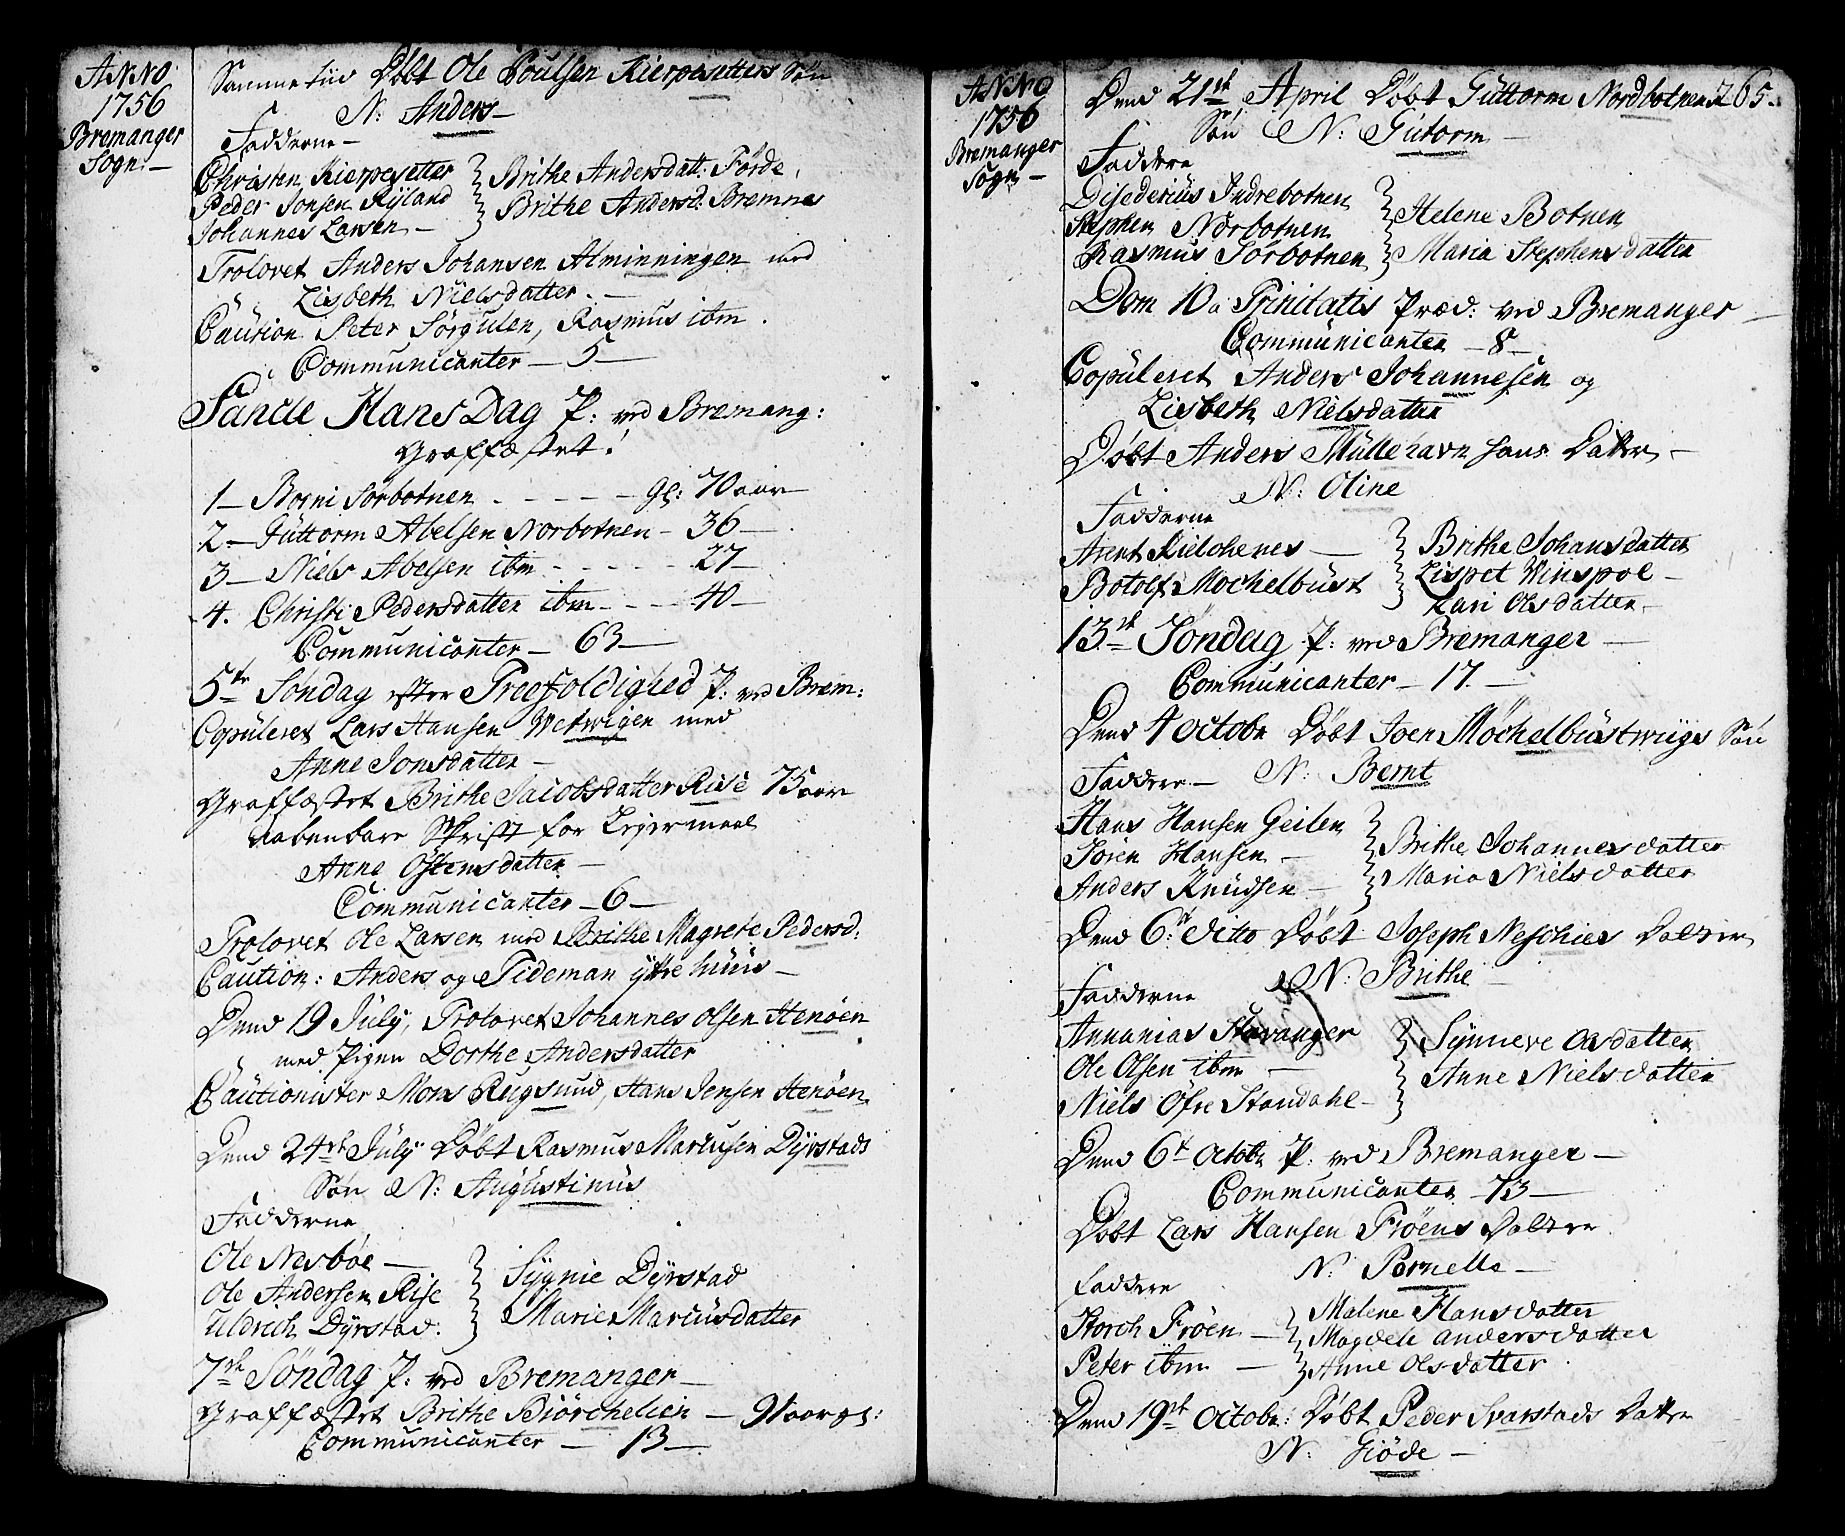 ANNO
1756
Bremanger
Sogn. —
Samme tiid Døbt Ole Poulsen Kierpesetters Søn
N: Anders —
Fadderne —
Christen Kierpesetter
Peder Jonsen Ryland
Johannes Larsen —
Brithe Andersdatt: Førde,
Brithe Andersd: Bremnes
Trolovet Anders Johansen Alminningen med
Lisbeth Nielsdatter. —
Caution Peter Sørgulen, Rasmus ibm.
Communicanter — 5 —
Sancte Hans Dag P: ved Bremang:
Graffæstet:
1 — Borni Sørbotnen - - - - - gl: 70 aar
2. — Guttorm Abelsen Norbotnen - 36 —
3 — Niels Abelsen ibm - - - - - 27 —
4. Christi Pedersdatter ibm - - - 40 —
Communicanter — 63 —
5te Søndag efter Treefoldighed P: ved Brem:
Copuleret Lars Hansen Wetwigen med
Anne Jonsdatter —
Graffæstet Brithe Jacobsdatter Rise 75 aar
Aabenbare Skrift for Lejermaal
Anne Ostensdatter —
Communicanter — 6 —
Trolovet Ole Larsen med Brithe Magrete Pedersd:
Caution: Anders og Tideman ytre huus —
Dend 19 July, Trolovet Johannes Olsen Henøen
med Pigen Dorthe Andersdatter
Cautionister Mons Rugsund, Hans Jensen Henøen
Dend 24de July Døbt Rasmus Marcusen Dyrstads
Søn N: Augustinus
Fadderne
Ole Nesbøe —
Ole Andersen Rise
Uldrich Dyrstad.
Sygnie Dyrstad
Marie Marcusdatter
7de Søndag P: ved Bremanger —
Graffæstet Brithe Biørchelien — 91 aar gl:
Communicanter — 13 —
ANNO
1756
Bremanger
Sogn —
265.
Dend 21st April Døbt Guttorm Nordbotnens
Søn N: Gutorm —
Faddere
Disederius Indrebotnen
Stephen Norbotnen
Rasmus Sørbotnen
Helene Botnen
Maria Stephensdatter
Dom 10a Trinitatis Præd: ved Bremanger —
Communicanter — 8 —
Copuleret Anders Johannesen og
Lisbeth Nielsdatter
Døbt Anders Müllehavn hans Datter —
N: Oline
Fadderne
Arent Kielchenes —
Botolf Mochelbust
Brithe Johansdatter
Lispet Winspol —
Kari Olsdatter —
13de Søndag P: ved Bremanger —
Communicanter — 17. —
Dend 4 Octobr Døbt Joen Møchelbustwiigs Søn
Faddere — N: Bernt
Hans Hansen Geilen
Joren Hansen —
Anders Knudsen —
Brithe Johannesdatter
Maria Nielsdatter
Dend 6te dito Døbt Joseph Neschies Datter
N: Brithe —
Fadderne
Annanias Stavanger
Ole Olsen ibm —
Niels Øfre Standahl —
Synneve Olsdatter
Anne Nielsdatter
Dend 6t Octob P: ved Bremanger —
Communicanter — 73 —
Døbt Lars Hansen Frøens Datter
N: Pernelle —
Faddere
Storch Frøen —
Peter ibm —
Malene Hansdatter
Magdele Andersdatter
Anne Olsdatter
Dend 19de Octobr: Døbt Peder Svarstads Datter
N: Giøde —